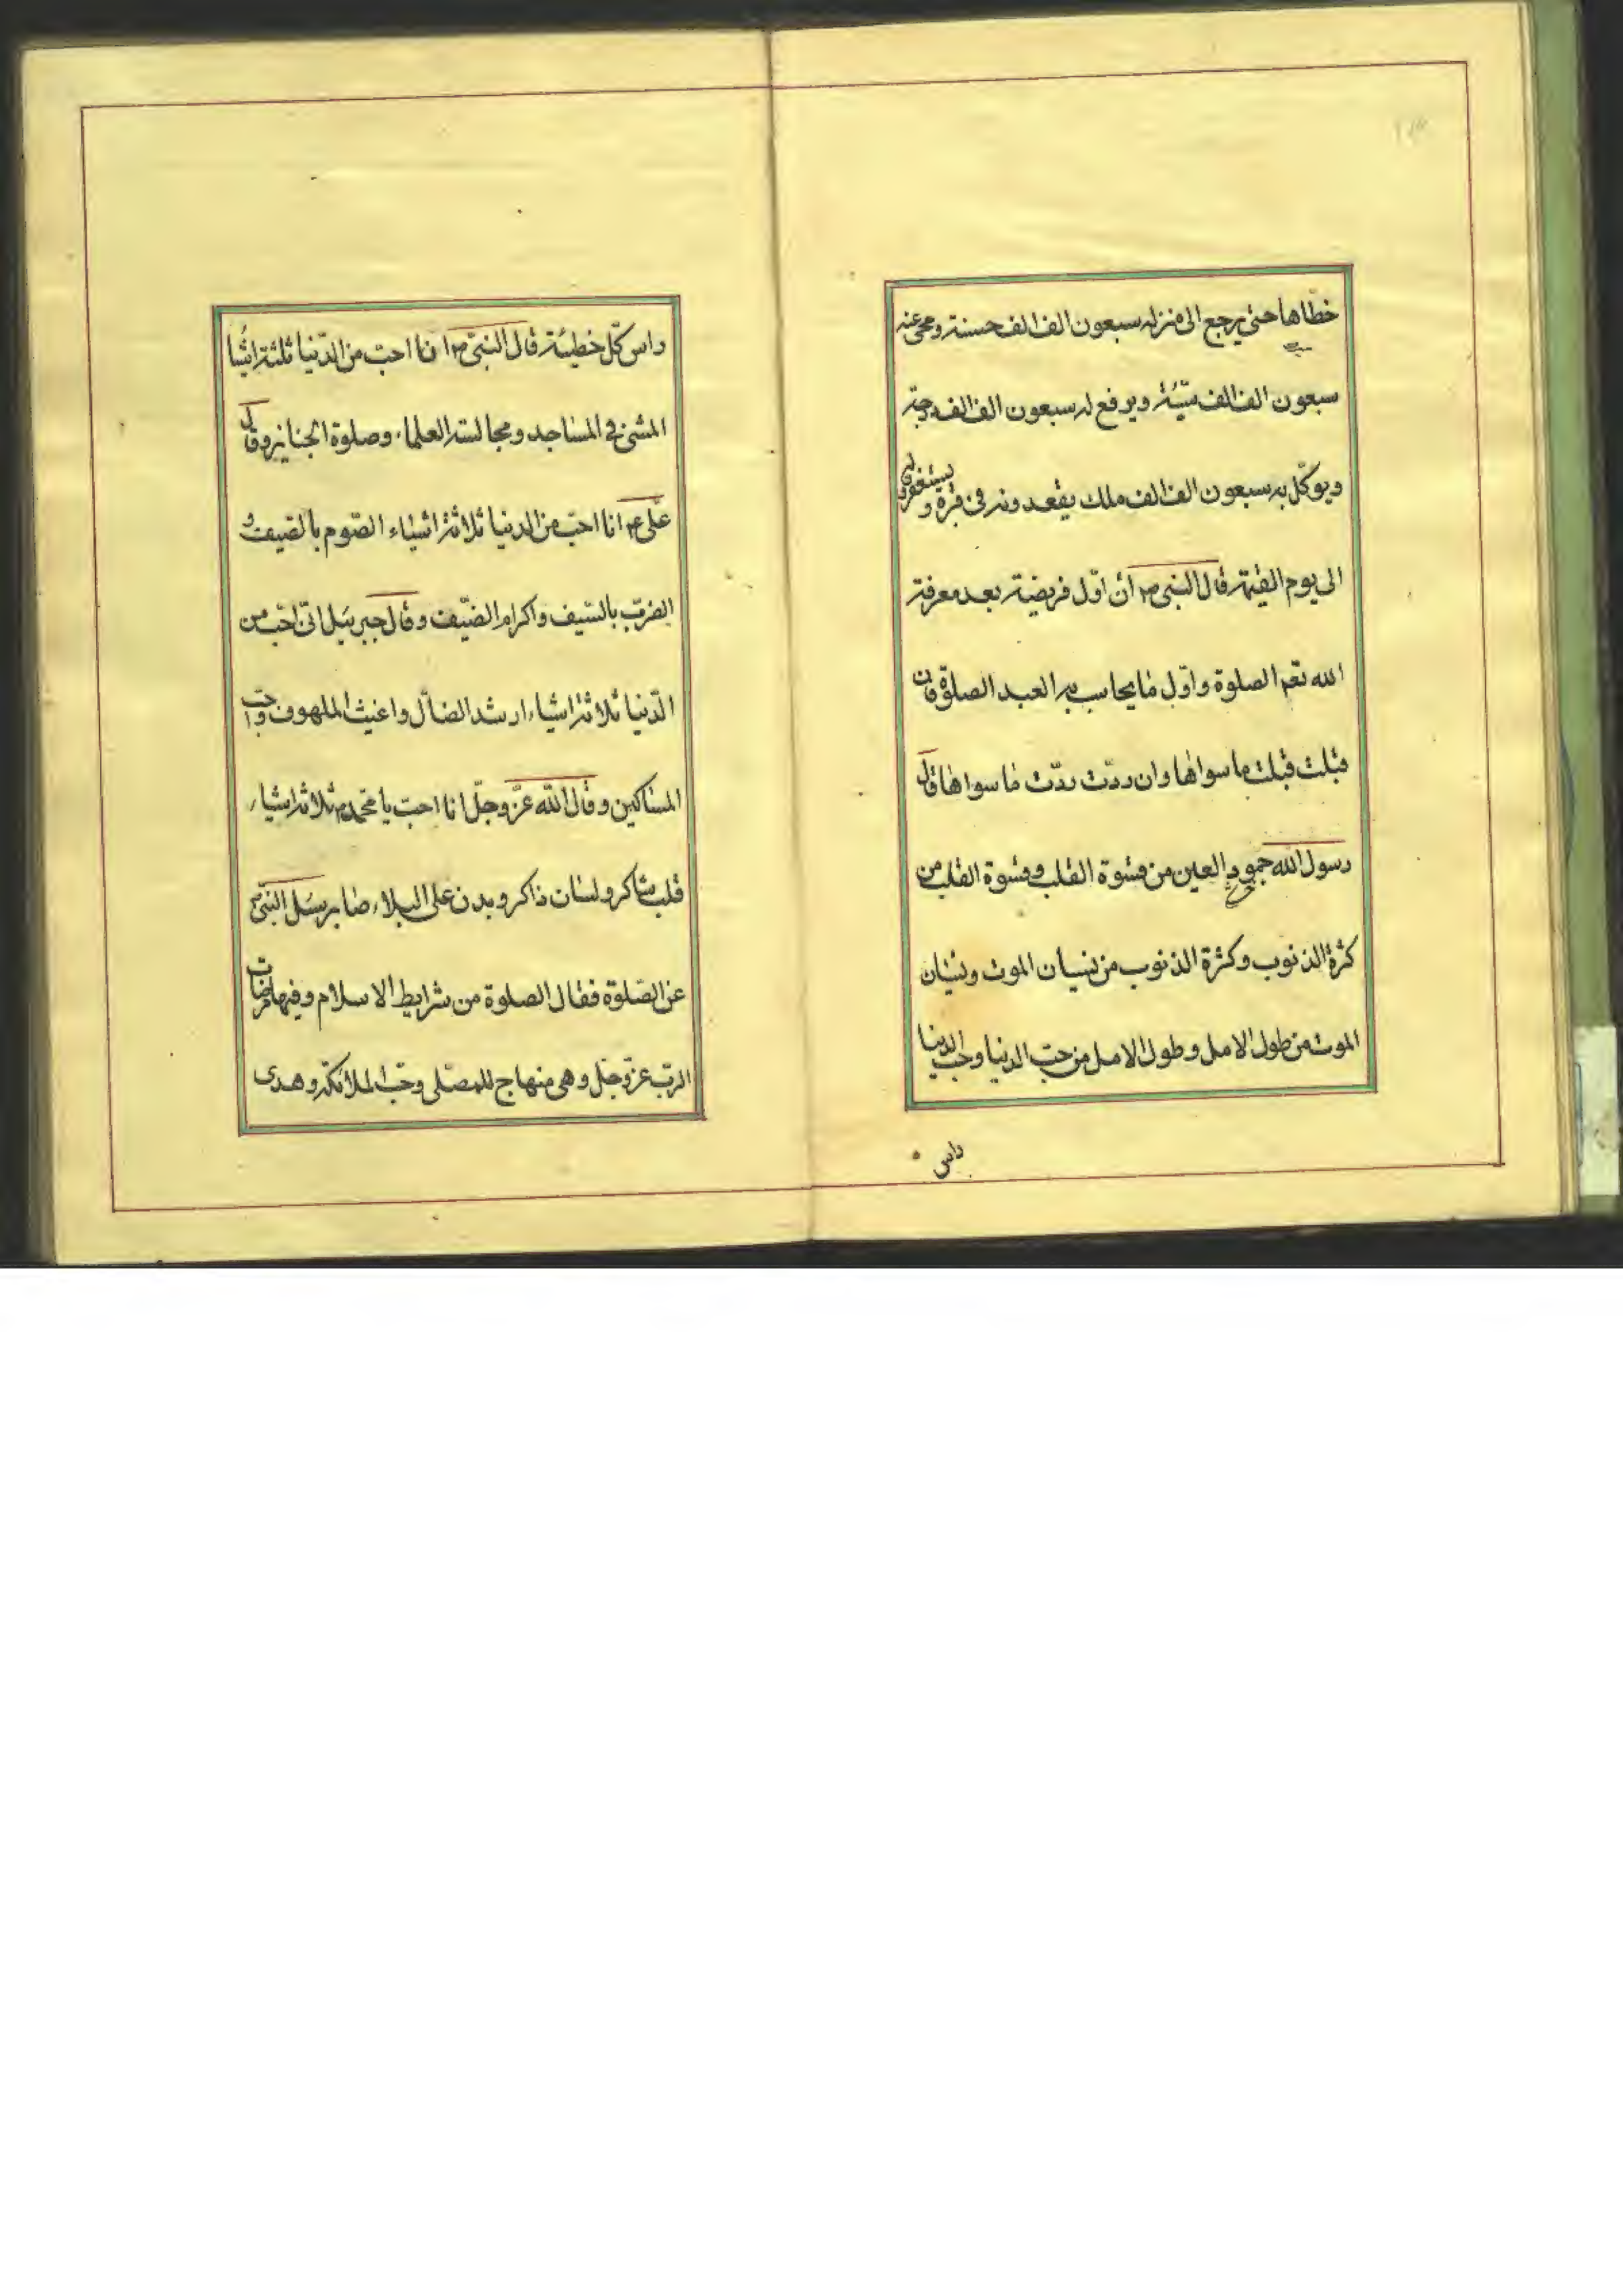 خطاها حتى يرجع الى منزله سبعون الف الف حسنة ومحى عنه
سبعون الف الف سيّئة ويرفع له سبعون الف الف درجة
ويوكّل به سبعون الف الف ملك يقعدونه فى قبره و يستغفرون له
الى يوم القيمة قال النبى ص انّ اوّل فريضة بعد معرفة
الله نعم الصلوة واوّل ما يحاسب به العبد الصلوة فان
قبلت قبلت ما سواها وان ردّت ردّت ما سواها قال
رسول الله جمود العين من قسوة القلب وقسوة القلب من
كثرة الذنوب وكثرة الذنوب من نسيان الموت ونسيان
الموت من طول الامل وطول الامل من حبّ الدنيا وحبّ الدنيا
راس
راس كلّ خطيئة قال النبىّ ص انا احبّ من الدّنيا ثلثة اشيا
المشى فى المساجد ومجالسة العلماء وصلوة الجنايز وقال
علىّ ع انا احبّ من الدنيا ثلاثة اشياء الصّوم بالصّيف و
الضرب بالسّيف واكرام الضّيف وقال جبرئيل انّى احبّ من
الدّنيا ثلاثة اشياء ارشد الضالّ واغيث الملهوف واحبّ
المساكين وقال الله عزّ وجلّ انا احبّ يا محمّد ص ثلاثة اشياء
قلب شاكر ولسان ذاكر وبدن على البلاء صابر سئل النبىّ ص
عن الصّلوة فقال الصلوة من شرايط الاسلام وفيها مرضات
الربّ عزّ وجلّ وهى منهاج للمصلّى وحبّ الملائكة وهدى